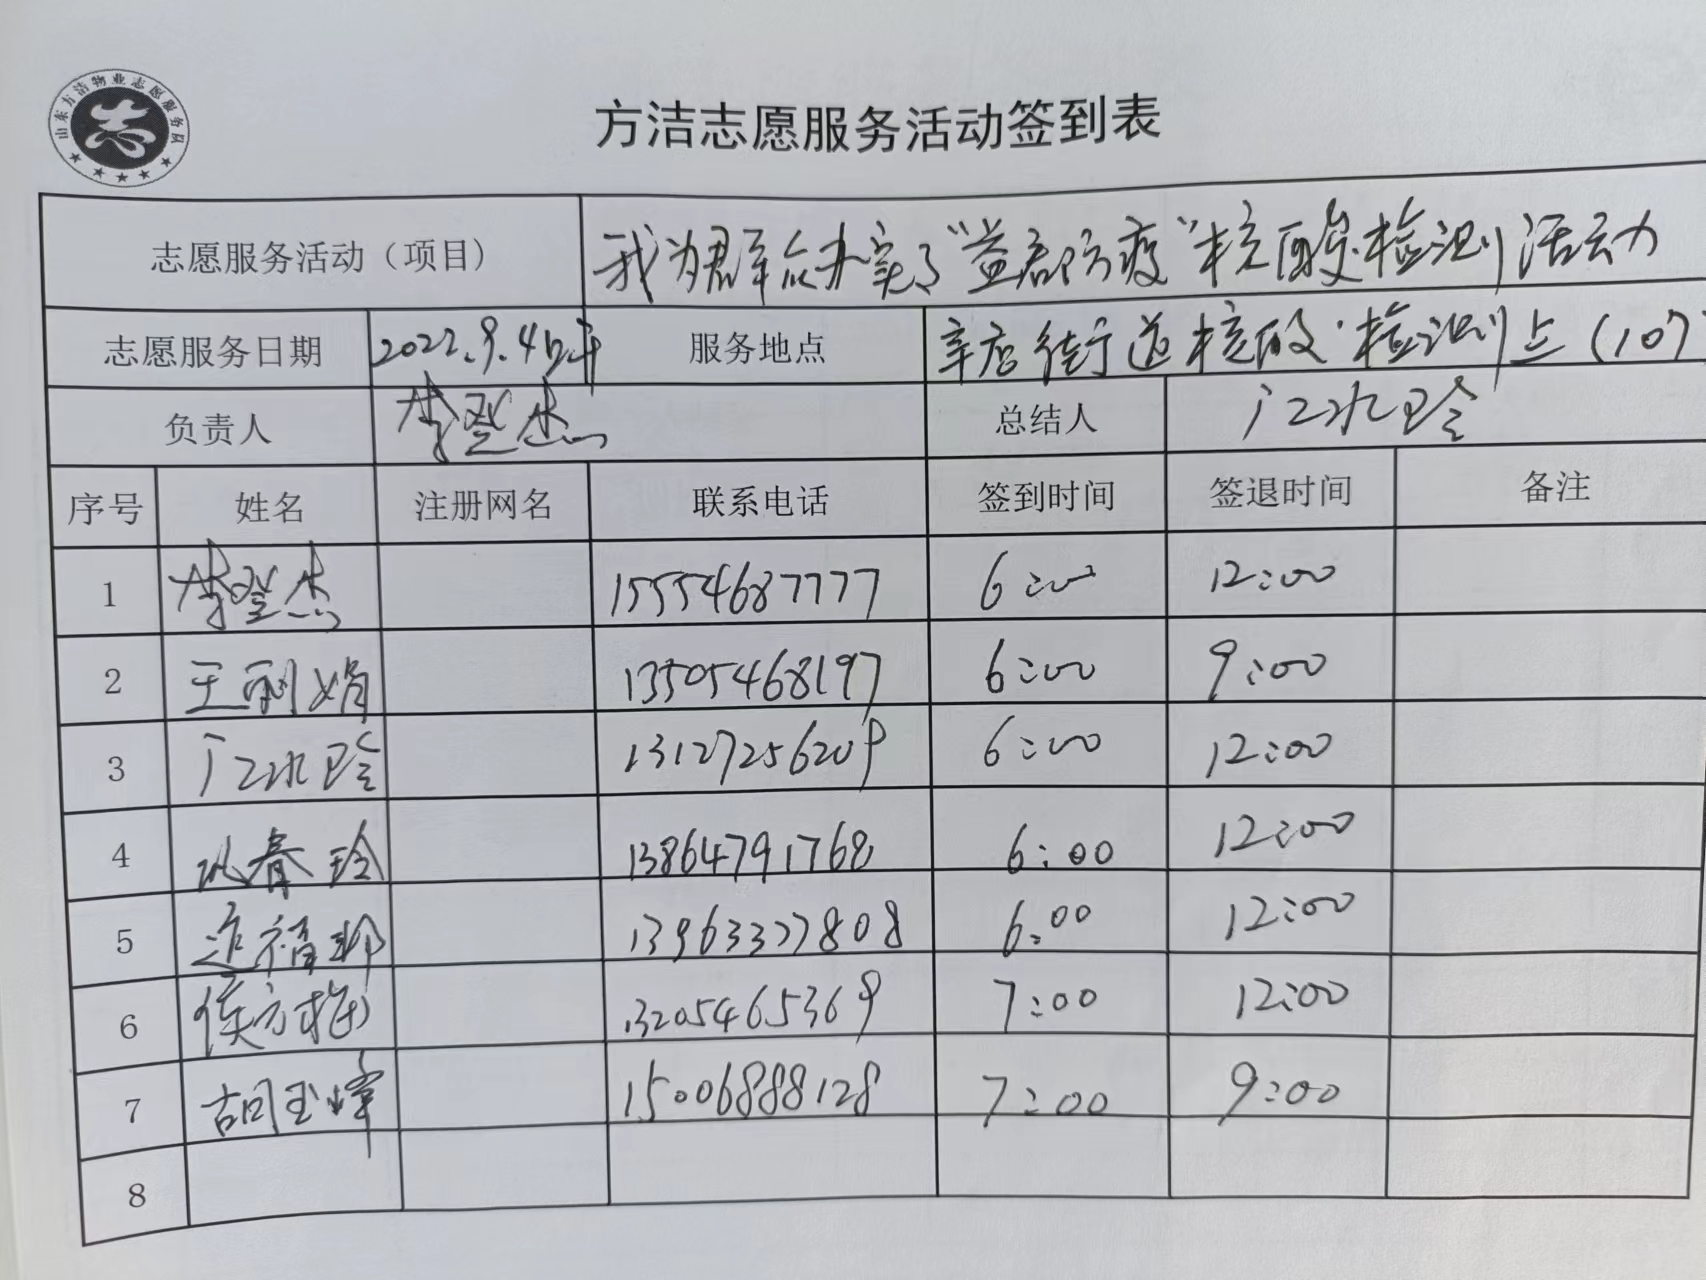 山东方洁物业志愿服务队
志
方洁志愿服务活动签到表
志愿服务活动（项目） 我为群众办实事"益启防疫"核酸检测活动
志愿服务日期 2022.9.4 服务地点 辛店街道核酸检测点(107
负责人 李登杰 总结人
序号 姓名 注册网名 联系电话 签到时间 签退时间 备注
1 李登杰 15554687777 6:00 12:00
2 王利娟 13505468197 6:00 9:00
3 13127256209 6:00 12:00
4 春玲 13864791768 6:00 12:00
5 13963327808 6:00 12:00
6 侯方梅 13205465369 7:00 12:00
7 胡玉峰 15006888128 7:00 9:00
8